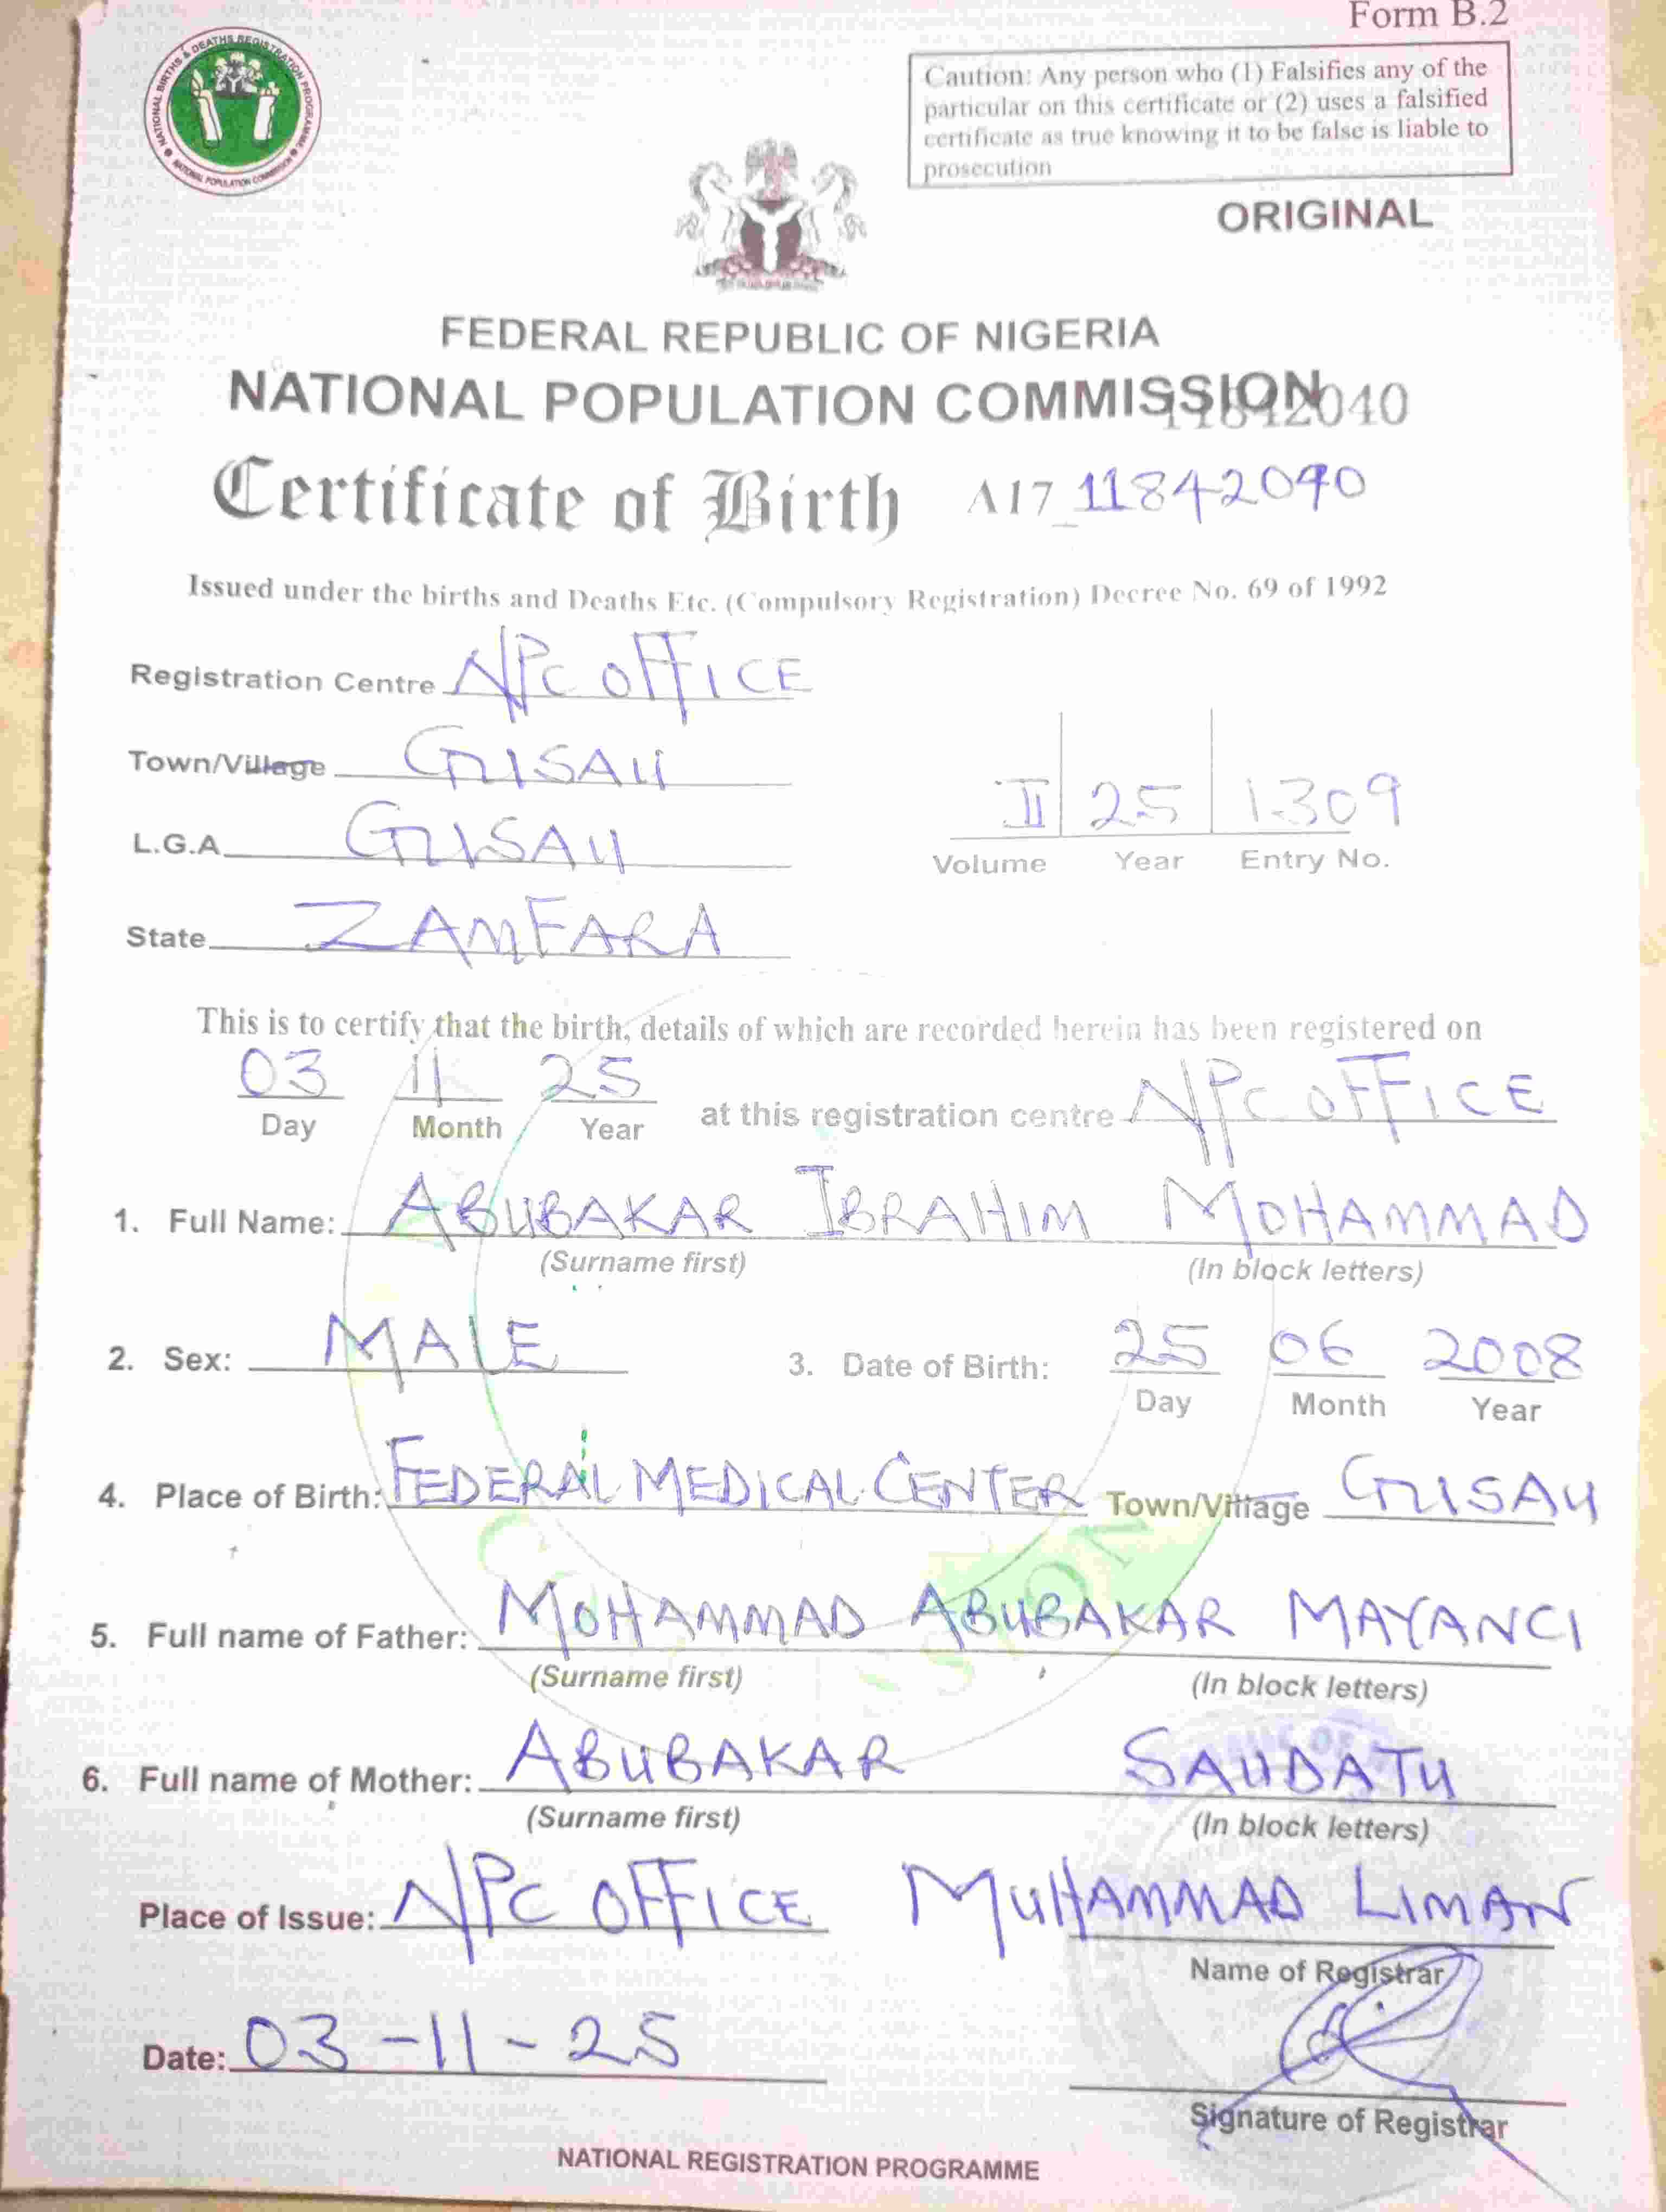 Form B.2
NATIONAL BIRTHS & DEATHS REGISTRATION PROGRAMME
NATIONAL POPULATION COMMISSION
Caution: Any person who (1) Falsifies any of the
particular on this certificate or (2) uses a falsified
certificate as true knowing it to be false is liable to
prosecution
ORIGINAL
FEDERAL REPUBLIC OF NIGERIA
NATIONAL POPULATION COMMISSION
11842040
Certificate of Birth A17 11842040
Issued under the births and Deaths Etc. (Compulsory Registration) Decree No. 69 of 1992
Registration Centre NPC OFFICE
Town/Village GUSAU
L.G.A GUSAU
State ZAMFARA
II 25 1309
Volume Year Entry No.
This is to certify that the birth, details of which are recorded herein has been registered on
03 11 25 at this registration centre NPC OFFICE
Day Month Year
1. Full Name: ABUBAKAR IBRAHIM MOHAMMAD
(Surname first) (In block letters)
2. Sex: MALE 3. Date of Birth: 25 06 2008
Day Month Year
4. Place of Birth: FEDERAL MEDICAL CENTER Town/Village GUSAU
5. Full name of Father: MOHAMMAD ABUBAKAR MAYANCI
(Surname first) (In block letters)
6. Full name of Mother: ABUBAKAR SAUDATU
(Surname first) (In block letters)
Place of Issue: NPC OFFICE MUHAMMAD LIMAN
Name of Registrar
Date: 03-11-25
Signature of Registrar
NATIONAL REGISTRATION PROGRAMME